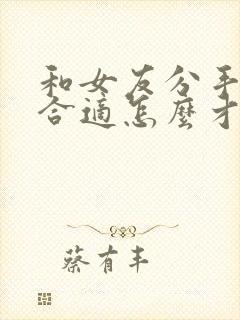 和女友分手
合適怎麼才
蔡有丰